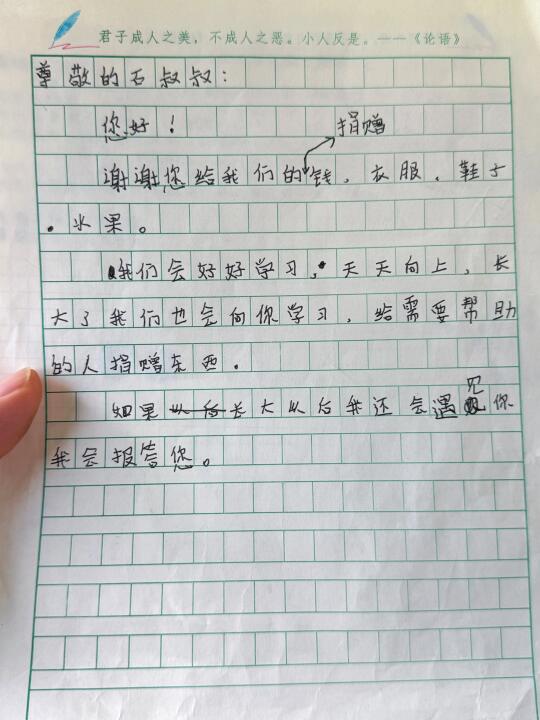 君子成人之美，不成人之恶。小人反是。——《论语》
尊敬的石叔叔：
您好！
捐赠
谢谢您给我们的钱、衣服、鞋子
、水果。
我们会好好学习，天天向上，长
大了我们也会向你学习，给需要帮助
的人捐赠东西。
如果以后长大以后我还会遇见你
我会报答您。